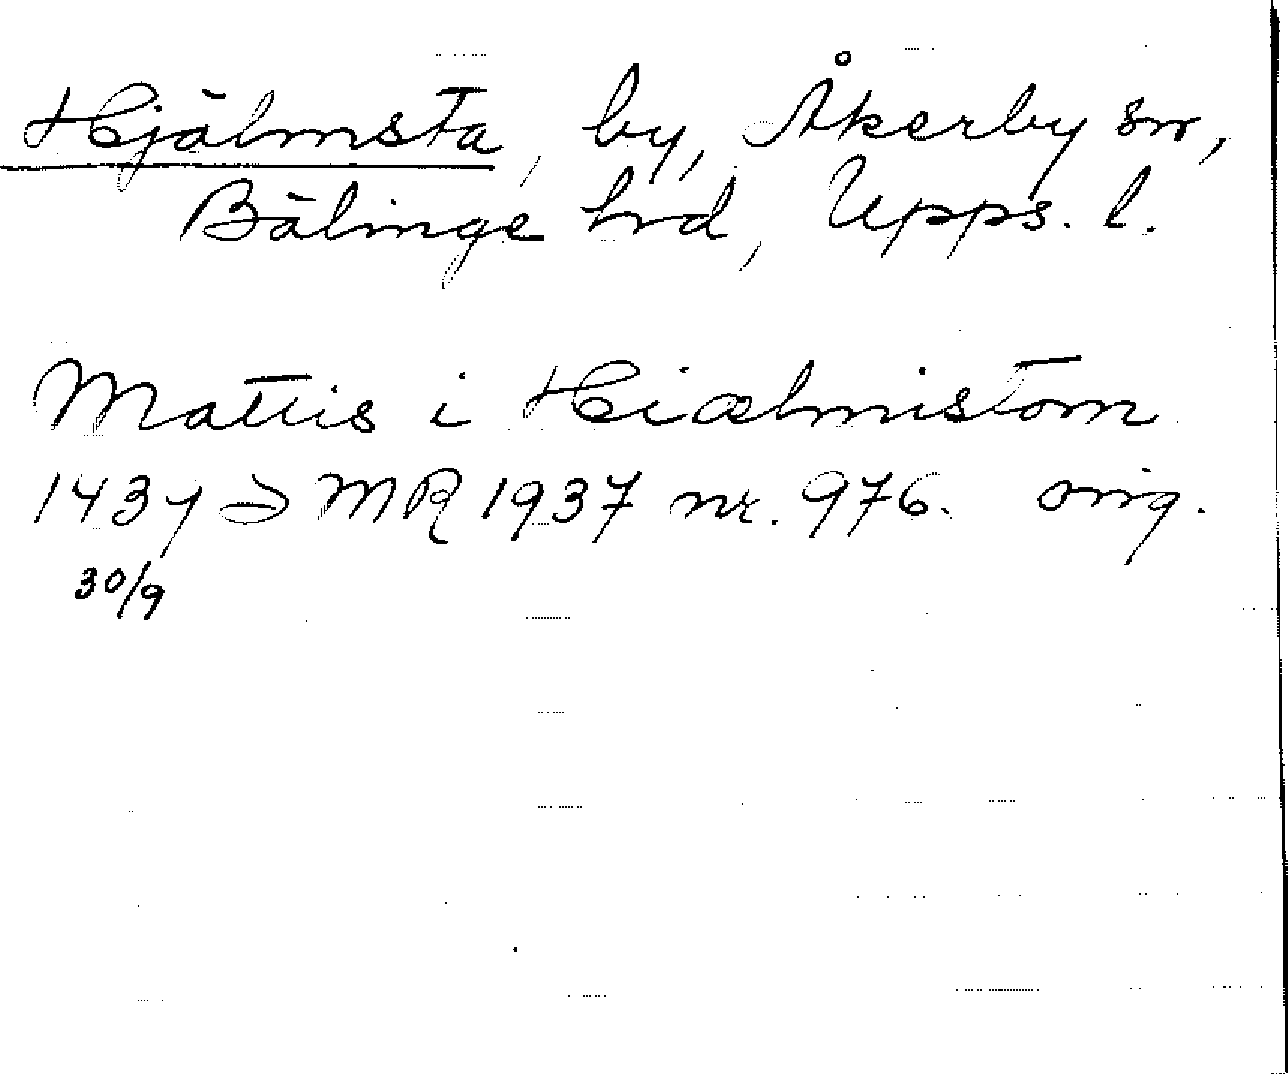 Hjälmsta, by, Åkerby sn,
Bälinge hrd, Upps. l.
Mattis i Hiælmistom
1434 MR 1937 nr. 976. orig.
30/9